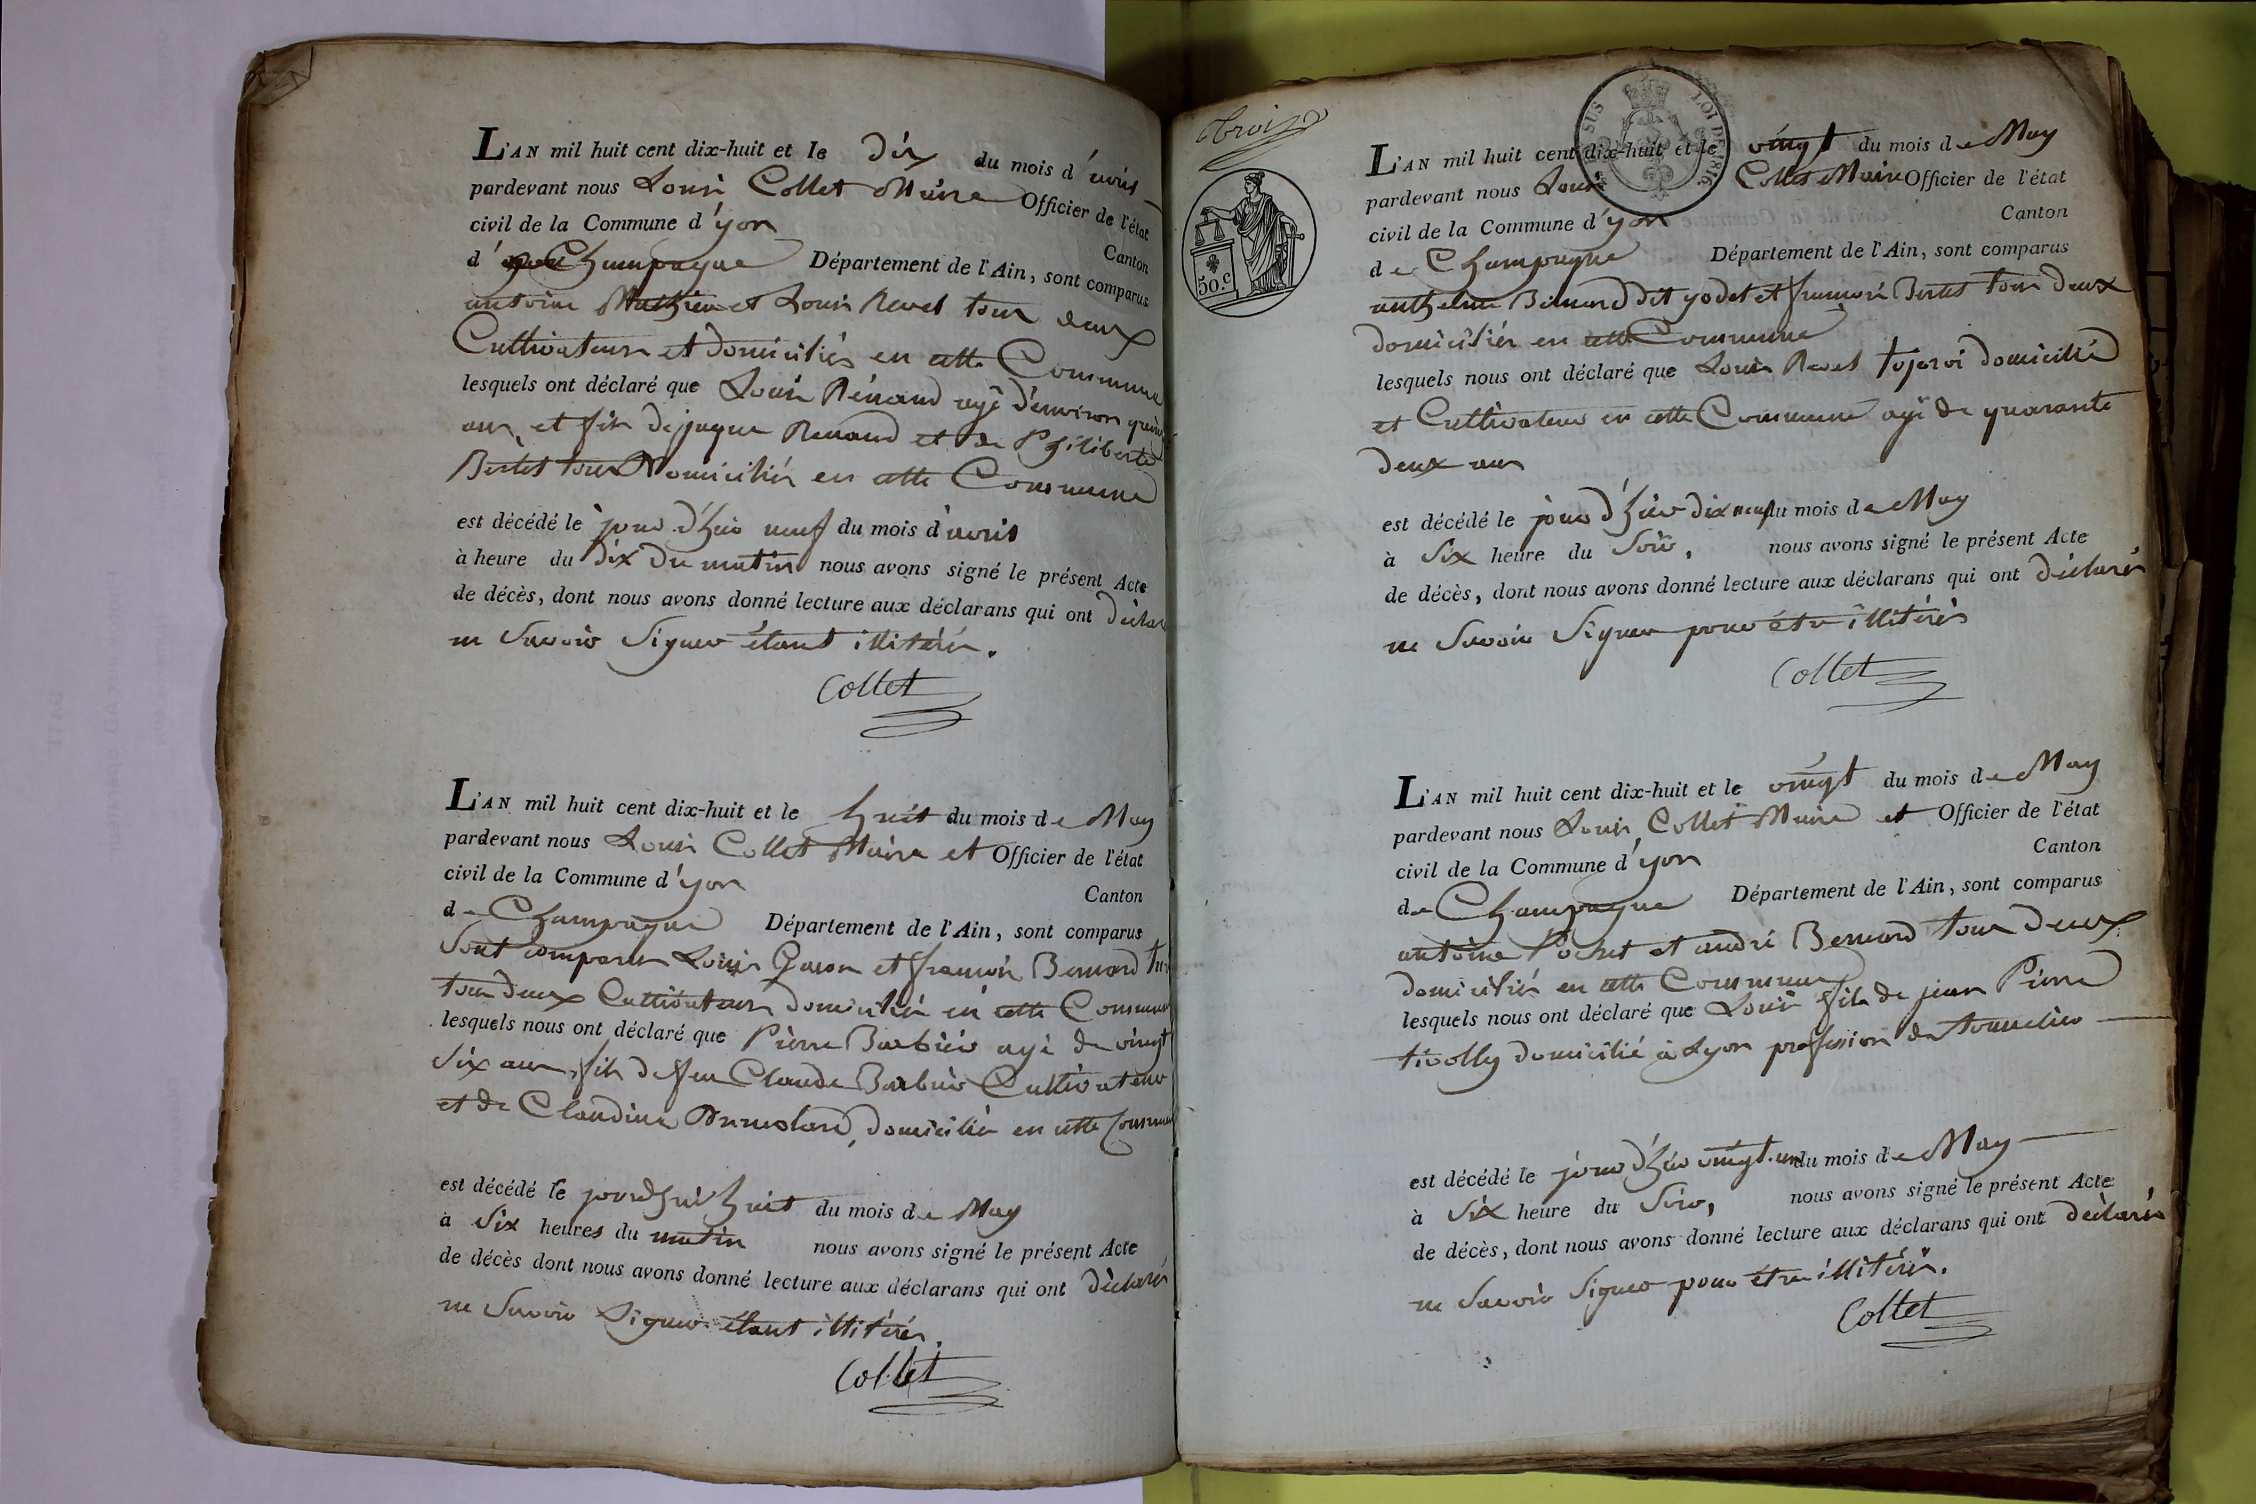 L'AN mil huit cent dix-huit et le dix du mois d'avril
pardevant nous Louis Collet Maire Officier de l'état
civil de la Commune d'yon
Canton
d' Champagne Département de l'Ain, sont comparus
antoine Mathieu et Louis Revel tous deux
Cultivateurs et domiciliés en cette Commune
lesquels ont déclaré que Louis Rénaud agé d'environ
ans, et fils de jaque Renaud et de Philiberte
Bertet tous Domiciliés en cette Commune
est décédé le jour d'hier neuf du mois d'avril
à heure du dix du matin nous avons signé le présent Acte
de décès, dont nous avons donné lecture aux déclarans qui ont déclaré
ne Savoir Signer étant illitérés.
Collet
L'AN mil huit cent dix-huit et le huit du mois de May
pardevant nous Louis Collet Maire et Officier de l'état
civil de la Commune d'yon
Canton
de Champagne Département de l'Ain, sont comparus
Sont comparus Louis et francois Bernard
tous deux Cultivateurs domiciliés en cette Commune
lesquels nous ont déclaré que Pierre Barbier agé de vingt
Six ans, fils de feu Claude Barbier Cultivateur
et de Claudine domiciliés en cette Commune
est décédé le jourdhui huit du mois de May
à Six heures du matin nous avons signé le présent Acte
de décès dont nous avons donné lecture aux déclarans qui ont déclarés
ne Savoir Signer étant illitérés.
Collet
SUS LOI DE 1816
50.c
L'AN mil huit cent dix-huit et le vingt du mois de May
pardevant nous Louis Collet Maire Officier de l'état
civil de la Commune d'yon
Canton
de Champagne Département de l'Ain, sont comparus
anthelme Bernard dit godet et francois Bertet tous deux
domiciliés en cette Commune
lesquels nous ont déclaré que Louis Revel domicilié
et Cultivateur en cette Commune agé de quarante
deux ans
est décédé le jour d'hier dix neuf du mois de May
à Six heure du Soir, nous avons signé le présent Acte
de décès, dont nous avons donné lecture aux déclarans qui ont déclarés
ne Savoir Signer pour être illitérés
Collet
L'AN mil huit cent dix-huit et le vingt du mois de May
pardevant nous Louis Collet Maire et Officier de l'état
civil de la Commune d'yon
Canton
de Champagne Département de l'Ain, sont comparus
antoine Pochet et andré Bernard tous deux
domiciliés en cette Commune
lesquels nous ont déclaré que Louis fils de jean Pierre
tivolly domicilié à Lyon profession de tonnelier
est décédé le jour d'hier vingt-un du mois de May
à Six heure du Soir, nous avons signé le présent Acte
de décès, dont nous avons donné lecture aux déclarans qui ont déclarés
ne Savoir Signer pour être illitérés.
Collet